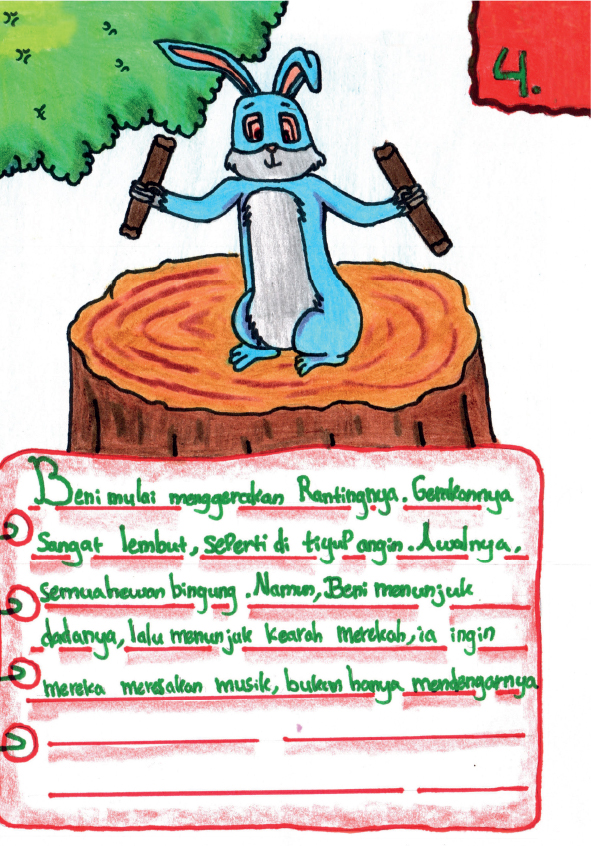 4.
Beni mulai menggerakan Rantingnya. Gerakannya
sangat lembut, seperti di tiyup angin. Awalnya,
semuahewan bingung. Namun, Beni menunjuk
dadanya, lalu menunjuk kearah merekah, ia ingin
mereka meresakan musik, bukan hanya mendengarnya